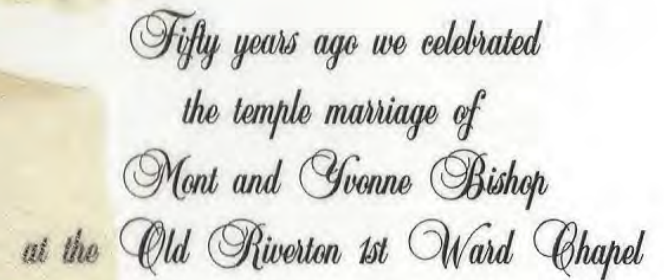 Fifty years ago we celebrated
the temple marriage of
Mont and Yvonne Bishop
at the Old Riverton 1st Ward Chapel